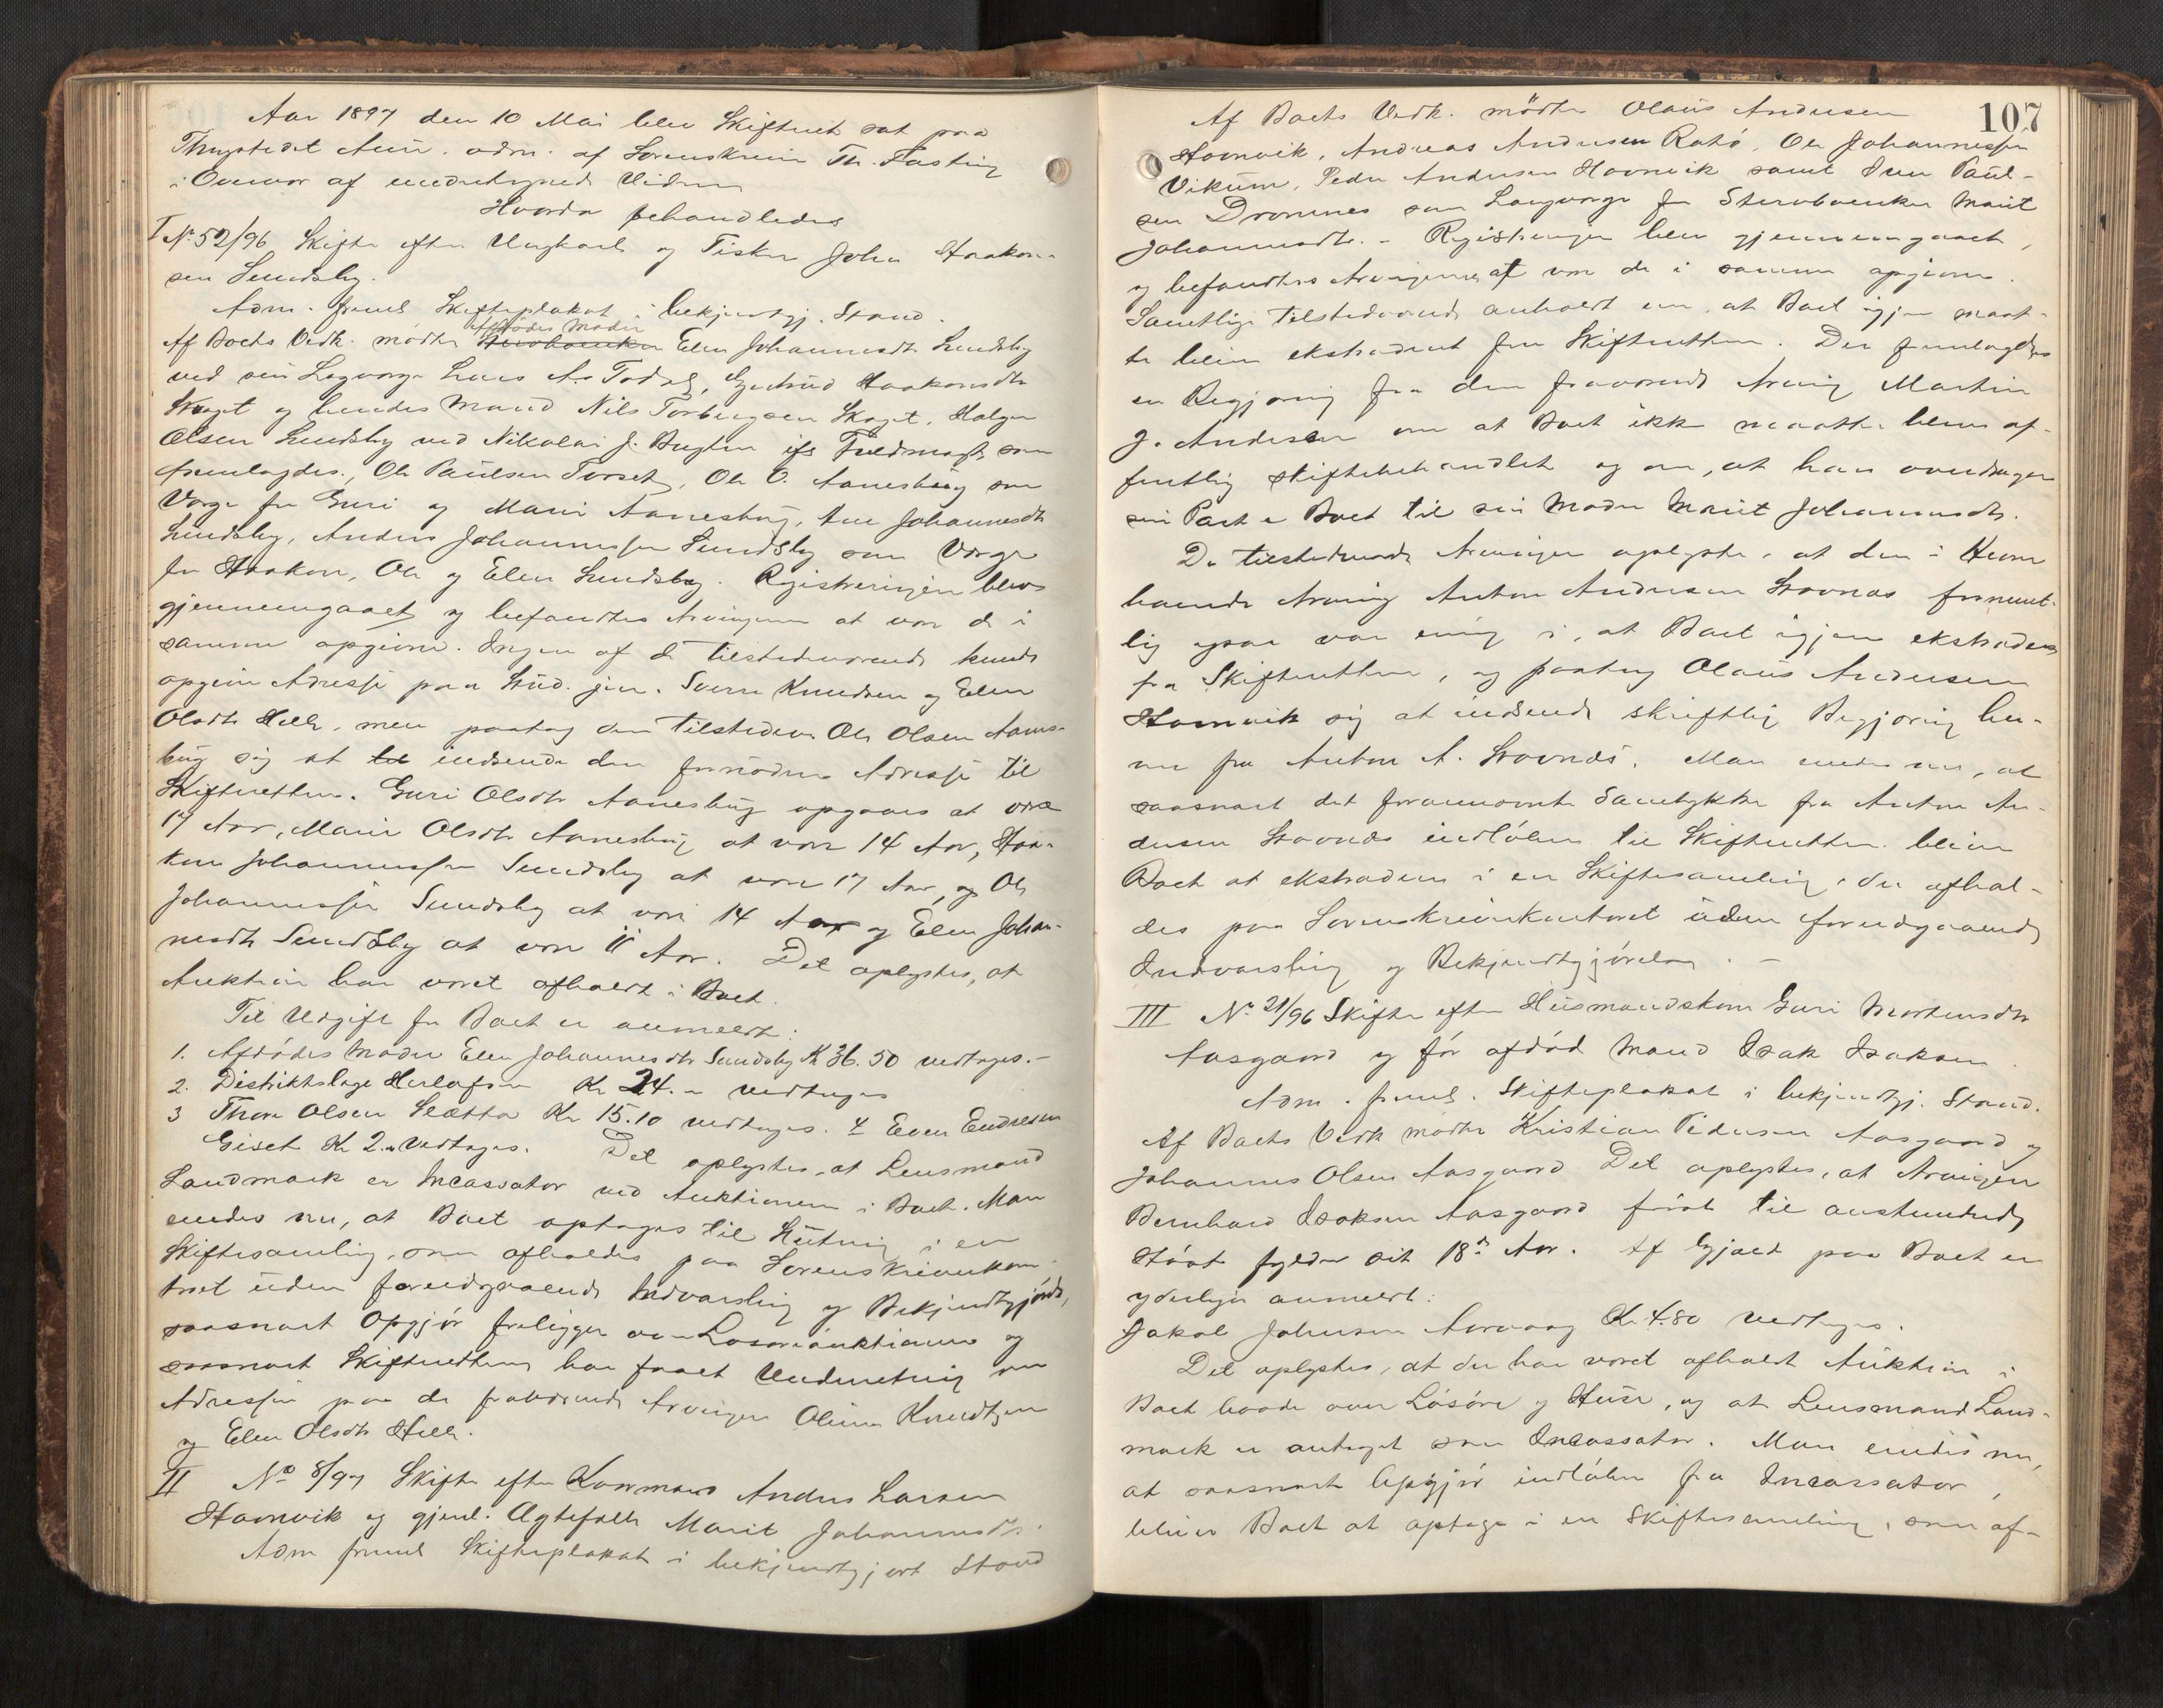 Aar 1897 den 10 Mai blev Skifteret sat paa
Thingstedet Aure. adm. af Sorenskriver Th. Fasting
i Overvær af undertegnede Vidner
Hvorda behandledes
I No 52/96 Skifte efter Ungkarl og Fisker John Haakon-
sen Sundsby.
Adm. freml. Skifteplakat i bekjendtgj. Stand.
Afdødes Moder
Af Boets Vedk. mødte Elen Johannesdtr Sundsby
ved sin Lagværge Lars A. Todal, Gjertrud Haakonsdtr
Skaget og hendes Mand Nils Torbergsen Skaget, Halger
Olsen Sundsby ved Nikolai J. Bugten ifg Fuldmagt som
fremlagdes, Ole Paulsen Torset, Ole O. Aanesbug som
Værge for Guri og Marie Aanesbug, Ane Johannesdtr
Sundsby, Anders Johannessen Sundsby som Værge
for Haakon, Ole og Elen Sundsby. Registreringen blev
gjennemgaaet og befandtes Arvingerne at være de i
samme opgivne. Ingen af de tilstedeværende kunde
opgive Adresse paa Knudsen og Elen
Olsdtr Helle, men paatog den tilstedev. Ole Olsen Aanes-
bug sig at indsende den fornødne Adresse til
Skifteretten. Guri Olsdtr Aanesbug opgaves at være
17 Aar, Marie Olsdtr Aanesbug at være 14 Aar, Haa-
kon Johannessen Sundsby at være 17 Aar, og Ole
Johannessen Sundsby at være 14 Aar og Elen Johan-
nesdtr Sundsby at være 11 Aar. Det oplystes, at
Auktion har været afholdt i Boet.
Til Udgift for Boet er anmeldt:
1. Afdødes Moder Elen Johannesdtr Sundsby Kr 36.50 vedtoges.-
2. Distriktslæge Herlofsen Kr 24.- vedtoges
3 Thore Olsen Slætta Kr 15.10 vedtoges. 4 Even Endresen
Giset Kr 2.- Vedtoges. Det oplystes, at Lensmand
Landmark er Incassator ved Auktionen i Boet. Man
enedes nu, at Boet optages til Slutning i en
Skiftesamling, som afholdes paa Sorenskriverkon-
toret uden foregaaende Indvarsling og Bekjendtgjørelse,
saasnart Opgjør foreligger over Løsøreauktionen og
saasnart Skifteretten har faaet Underretning om
Adressen paa de fraværende Arvinger Knudsen
og Elen Olsdtr Helle.
II No 8/97 Skifte efter Kaarmand Anders Larsen
Stavnvik og gjenl. Ægtefælle Marit Johannesdtr.
Adm freml Skifteplakat i bekjendtgjort Stand
107
Af Boets Vedk. mødte Olaus Andersen
Stavnvik, Andreas Andersen Ratø, Ole Johannessen
Vikum, Peder Andersen Stavnvik samt Iver Paul-
sen Dromnes som Laugværge for Stervboenken Marit
Johannesdtr. - Registreringen blev gjennemgaaet,
og befandtes Arvingerne at være de i samme opgivne.
Samtlige Tilstedeværende anholdt om, at Boet igjen maat-
te blive ekstraderet fra Skifteretten. Der fremlagdes
en Begjæring fra den fraværende Arving Martin
J. Andersen om at Boet ikke maatte blive of-
fentlig skiftebehandlet og om, at han overdrager
sin Part i Boet til sin Moder Marit Johannesdtr.
De tilstedeværende Arvinger oplyste, at den i Hevne
boende Arving Anton Andersen Stavnæs forment-
lig ogsaa var enig i, at Boet igjen ekstraderes
fra Skifteretten, og paatog Olaus Andersen
Stavnvik sig at indsende skriftlig Begjæring her-
om fra Anton A. Stavnæs. Man enedes om, at
saasnart det forannævnte Samtykke fra Anton An-
dersen Stavnæs indløber til Skifteretten, bliver
Boet at ekstradere i en Skiftesamling, der afhol-
des paa Sorenskriverkontoret uden foregaaende
Indvarsling og Bekjendtgjørelse. -
III No 21/96 Skifte efter Husmandskone Guri Mortensdtr
Aasgaard og før afdød Mand Isak Isaksen
Adm. freml. Skifteplakat i bekjendtgj. Stand.
Af Boets Vedk mødte Kristian Pedersen Aasgaard og
Johannes Olsen Aasgaard. Det oplystes, at Arvingen
Bernhard Isaksen Aasgaard først til anstundende
Høst fylder sit 18de Aar. Af Gjæld paa Boet er
yderligere anmeldt:
Jakob Johnsen Aarvaag Kr. 4.80 vedtoges.
Det oplystes, at der har været afholdt Auktion i
Boet baade over Løsøre og Huse, og at Lensmand Land-
mark er antaget som Incassator. Man enedes nu,
at saasnart Opgjør indløber fra Incassator,
bliver Boet at optage i en Skiftesamling, som af-